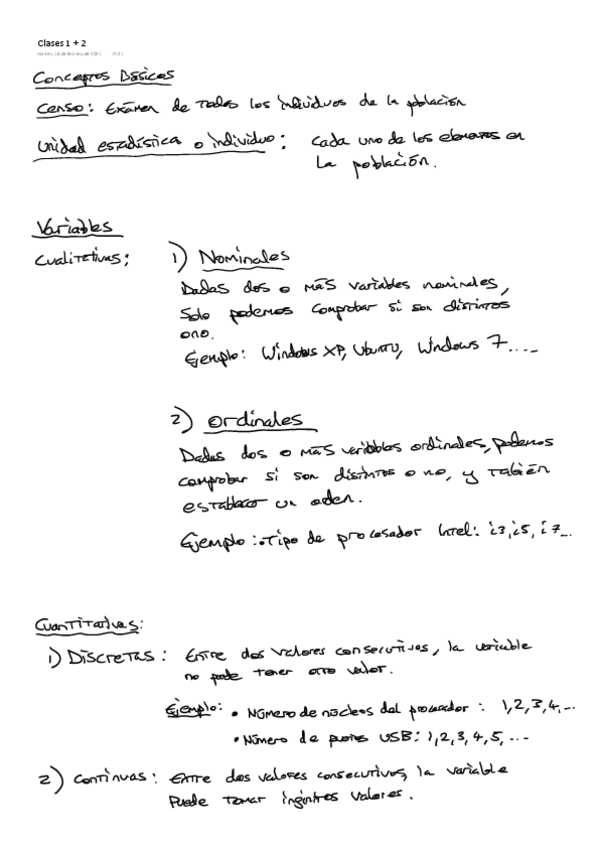 Clases 1 + 2
martes, 16 de febrero de 2021
Conceptos Básicos
Censo: Exámen de todos los individuos de la población
Unidad estadística o individuo: Cada uno de los elementos en
La población.
Variables
Cualitativas:
1) Nominales
Dadas dos o más variables nominales,
Solo podemos comprobar si son distintos
o no.
Ejemplo: Windows XP, Ubuntu, Windows 7....
2) Ordinales
Dadas dos o más variables ordinales, podemos
comprobar si son distintos o no, y tabién
establecer un orden.
Ejemplo: •Tipo de procesador Intel: i3, i5, i7...
Cuantitativas:
1) Discretas: Entre dos valores consecutivos, la variable
no puede tener otro valor.
Ejemplo: • Número de núcleos del procesador: 1,2,3,4,...
• Número de puertos USB: 1,2,3,4,5,...
2) Continuas: Entre dos valores consecutivos, la variable
Puede tomar infinitos valores.